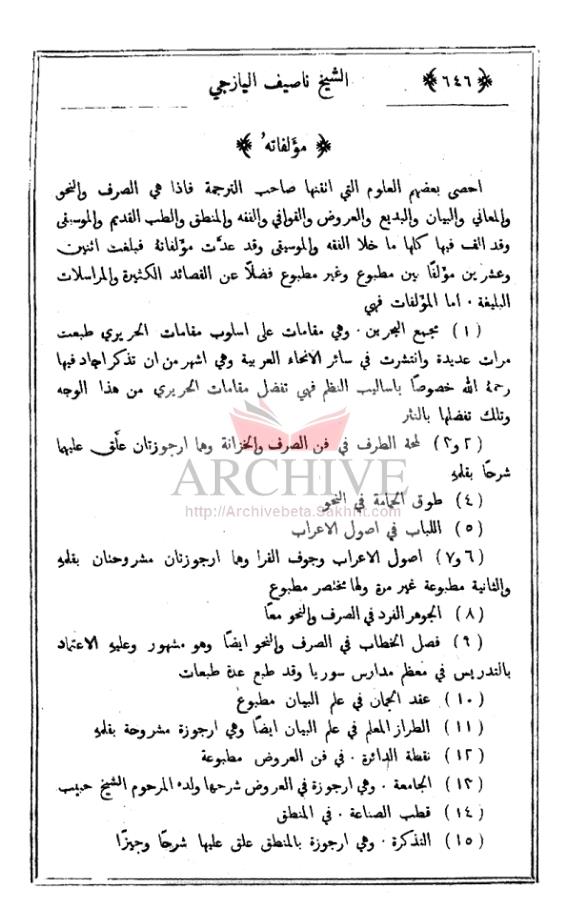 ﴿ ٦٤٦ ﴾ الشيخ ناصيف اليازجي
﴿ مؤلفاته ﴾
احصى بعضهم العلوم التي اتقنها صاحب الترجمة فاذا هي الصرف والنحو
والمعاني والبيان والبديع والعروض والقوافي والفقه والمنطق والطب القديم والموسيقى
وقد الف فيها كلها ما خلا الفقه والموسيقى وقد عدَّت مؤلفاتهُ فبلغت اثنين
وعشرين مؤلفًا بين مطبوع وغير مطبوع فضلًا عن القصائد الكثيرة والمراسلات
البليغة ٠ اما المؤلفات فهي
(١) مجمع البحرين ٠ وهي مقامات على اسلوب مقامات الحريري طبعت
مرات عديدة وانتشرت في سائر الانحاء العربية وهي اشهر من ان تذكر اجاد فيها
رحمهُ الله خصوصًا باساليب النظم فهي تفضل مقامات الحريري من هذا الوجه
وتلك تفضلها بالنثر
(٢ و٣) لمحة الطرف في فن الصرف والخزانة وها ارجوزتان علَّق عليهما
شرحًا بقلمهِ
ARCHIVE
(٤) طوق الحمامة في النحو
http://Archivebeta.Sakhrit.com
(٥) اللباب في اصول الاعراب
(٦ و٧) اصول الاعراب وجوف الفرا وها ارجوزتان مشروحتان بقلمهِ
والثانية مطبوعة غير مرة ولها مختصر مطبوع
(٨) الجوهر الفرد في الصرف والنحو معًا
(٩) فصل الخطاب في الصرف والنحو ايضًا وهو مشهور وعليهِ الاعتماد
بالتدريس في معظم مدارس سوريا وقد طبع عدة طبعات
(١٠) عقد الجمان في علم البيان مطبوع
(١١) الطراز المعلم في علم البيان ايضًا وهي ارجوزة مشروحة بقلمهِ
(١٢) نقطة الدائرة ٠ في فن العروض مطبوعة
(١٣) الجامعة ٠ وهي ارجوزة في العروض شرحها ولده المرحوم الشيخ حبيب
(١٤) قطب الصناعة ٠ في المنطق
(١٥) التذكرة ٠ وهي ارجوزة بالمنطق علق عليها شرحًا وجيزًا